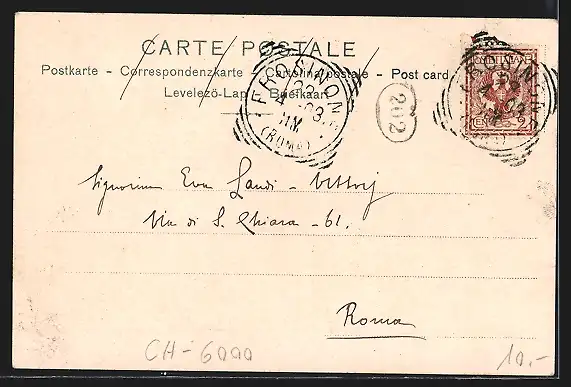 CARTE POSTALE
Postkarte - Correspondenzkarte - Cartolina postale - Post card
Levelező-Lap Briefkaart
FROSINONE
4 03
(ROMA)
202
POSTE ITALIANE
CENT. 2
Signorina Eva Landi - Vettorj
Via di S. Chiara - 61.
Roma
CH-6000
10.-